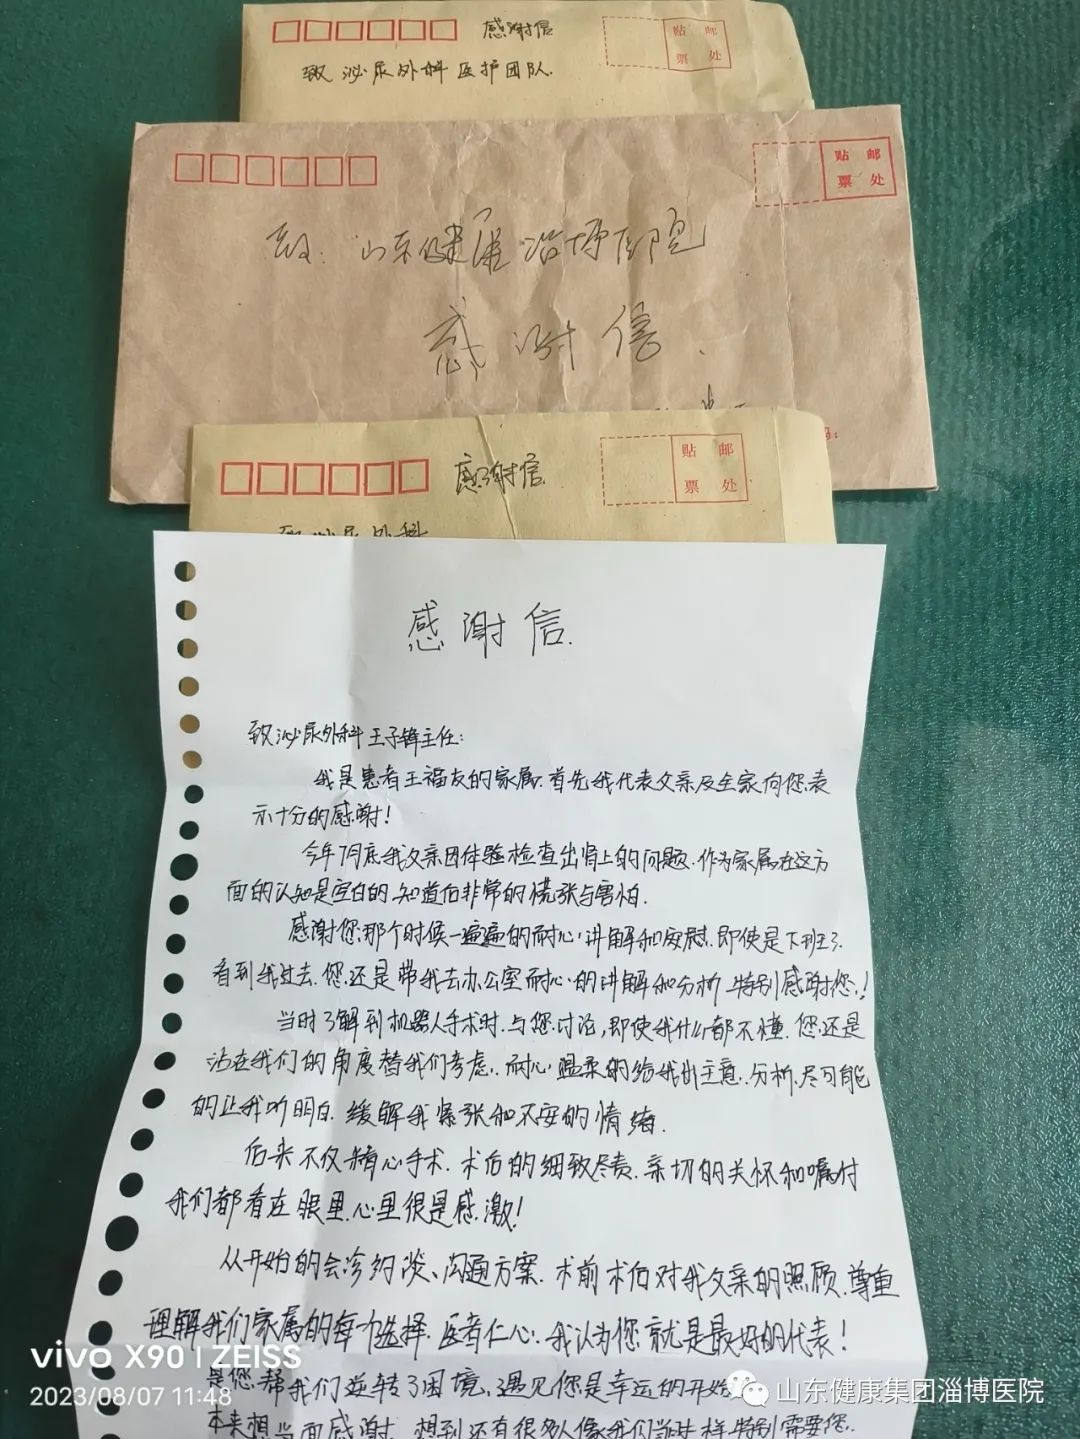 感谢信
贴 邮
票 处
致 泌尿外科医护团队
贴 邮
票 处
致 山东健康淄博医院
感谢信
码:
感谢信
贴 邮
票 处
致泌尿外科
感谢信
致泌尿外科王子锋主任:
我是患者王福友的家属.首先我代表父亲及全家向您表
示十分的感谢!
今年7月底我父亲因体验检查出肾上的问题.作为家属在这方
面的认知是空白的.知道后非常的慌张与害怕.
感谢您那个时候一遍遍的耐心讲解和安慰.即使是下班了
看到我过去.您还是带我去办公室耐心的讲解和分析.特别感谢您!
当时了解到机器人手术时.与您讨论,即使我什么都不懂.您还是
站在我们的角度替我们考虑.耐心温柔的给我出主意.分析.尽可能
的让我听明白.缓解我紧张和不安的情绪.
后来不仅精心手术.术后的细致尽责.亲切的关怀和嘱付
我们都看在眼里.心里很是感激!
从开始的会诊约谈、沟通方案.术前术后对我父亲的照顾.尊重
理解我们家属的每个选择.医者仁心.我认为您就是最好的代表!
是您帮我们逆转了困境,遇见您是幸运的开始
本来想当面感谢.想到还有很多人像我们当时一样特别需要您.
vivo X90 | ZEISS
2023/08/07 11:48
山东健康集团淄博医院